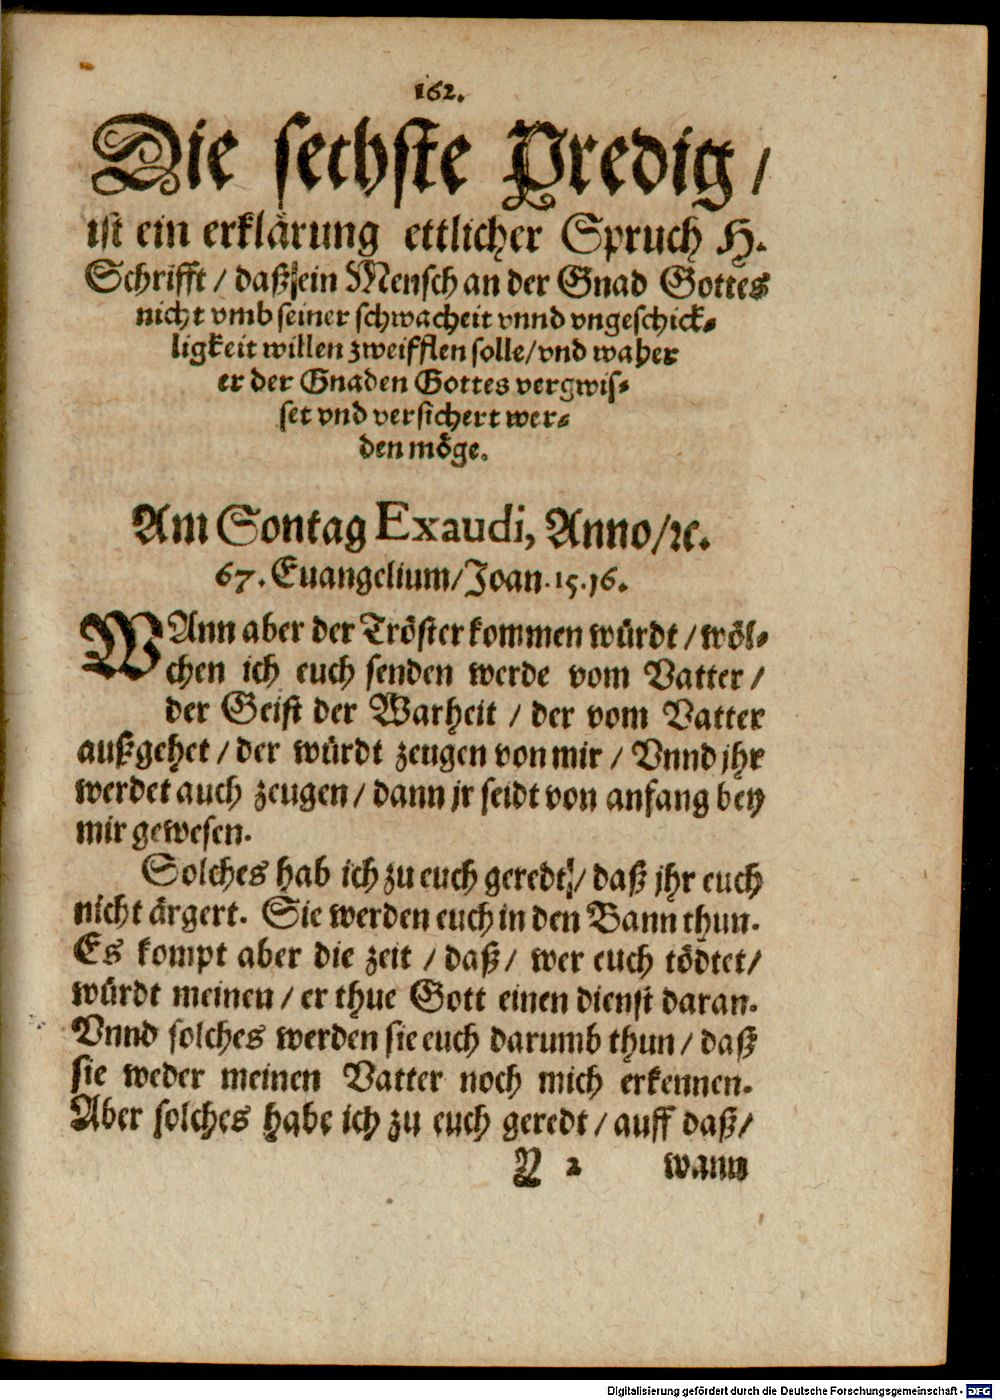 162.
Die sechste Predig /
ist ein erklärung ettlicher Spruch H.
Schrifft / daß ein Mensch an der Gnad Gottes
nicht vmb seiner schwacheit vnnd vngeschick-
ligkeit willen zweifflen solle / vnd waher
er der Gnaden Gottes vergwis-
set vnd versichert wer-
den möge.
Am Sontag Exaudi, Anno / ꝛc.
67. Euangelium / Joan. 15. 16.
WAnn aber der Tröster kommen würdt / wöl-
chen ich euch senden werde vom Vatter /
der Geist der Warheit / der vom Vatter
außgehet / der würdt zeugen von mir / Vnnd jhr
werdet auch zeugen / dann jr seidt von anfang bey
mir gewesen.
Solches hab ich zu euch geredt / daß jhr euch
nicht ärgert. Sie werden euch in den Bann thun.
Es kompt aber die zeit / daß / wer euch tödtet /
würdt meinen / er thue Gott einen dienst daran.
Vnnd solches werden sie euch darumb thun / daß
sie weder meinen Vatter noch mich erkennen.
Aber solches habe ich zu euch geredt / auff daß /
N 2 wann
Digitalisierung gefördert durch die Deutsche Forschungsgemeinschaft - DFG